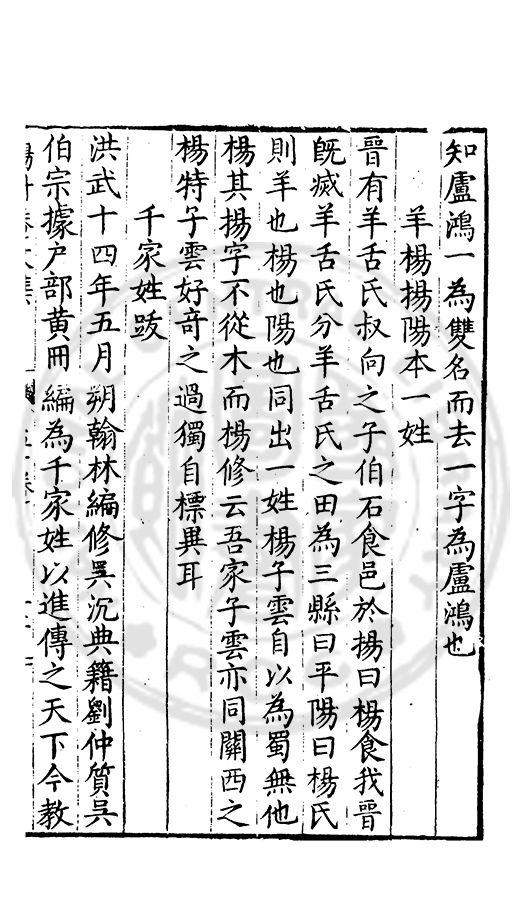 知盧鴻一為雙名而去一字為盧鴻也
羊楊揚陽本一姓
晉有羊舌氏叔向之子伯石食邑於揚曰楊食我晉
旣滅羊舌氏分羊舌氏之田為三縣曰平陽曰楊氏
則羊也楊也陽也同出一姓楊子雲自以為蜀無他
楊其揚字不從木而楊修云吾家子雲亦同關西之
楊特子雲好奇之過獨自標異耳
千家姓跋
洪武十四年五月朔翰林編修吳沉典籍劉仲質吳
伯宗據户部黃冊編為千家姓以進傳之天下今教